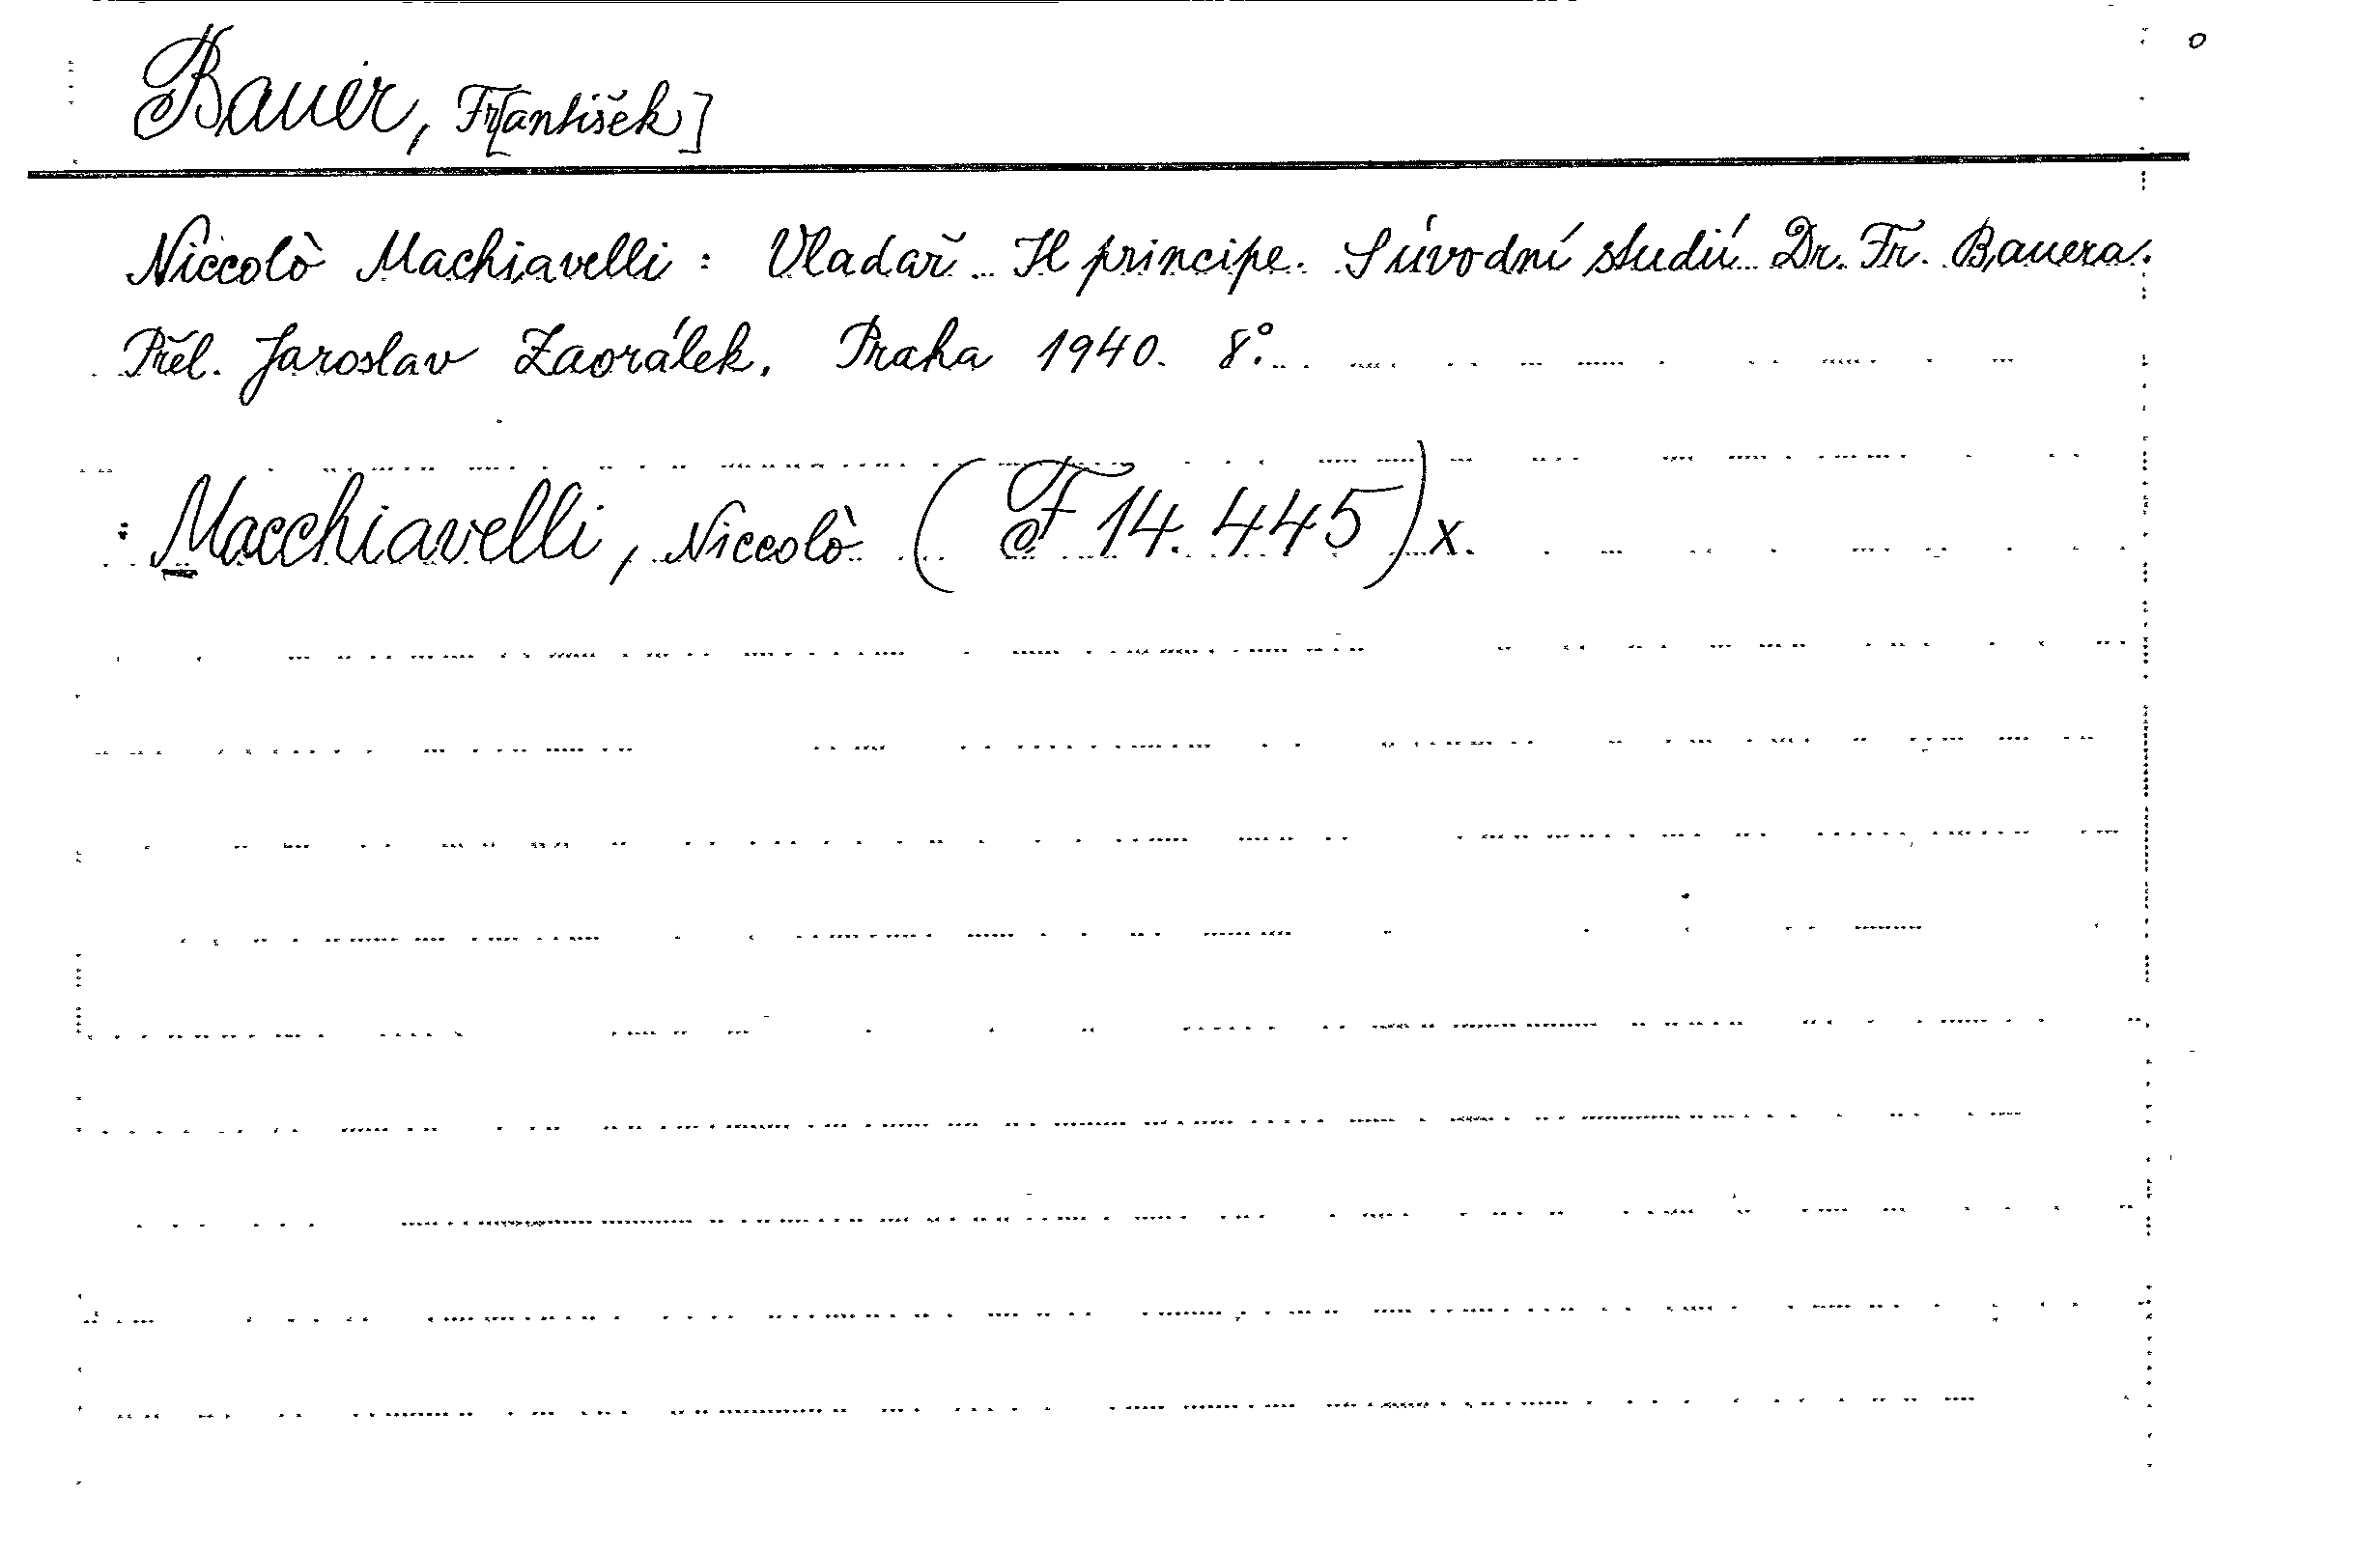 Bauer, Fr[antišek]
Niccolò Machiavelli: Vladař Il principe. S úvodní studií Dr. Fr. Bauera.
Přel. Jaroslav Zaorálek. Praha 1940. 8°.
: Macchiavelli, Niccolò (F 14.445) x.